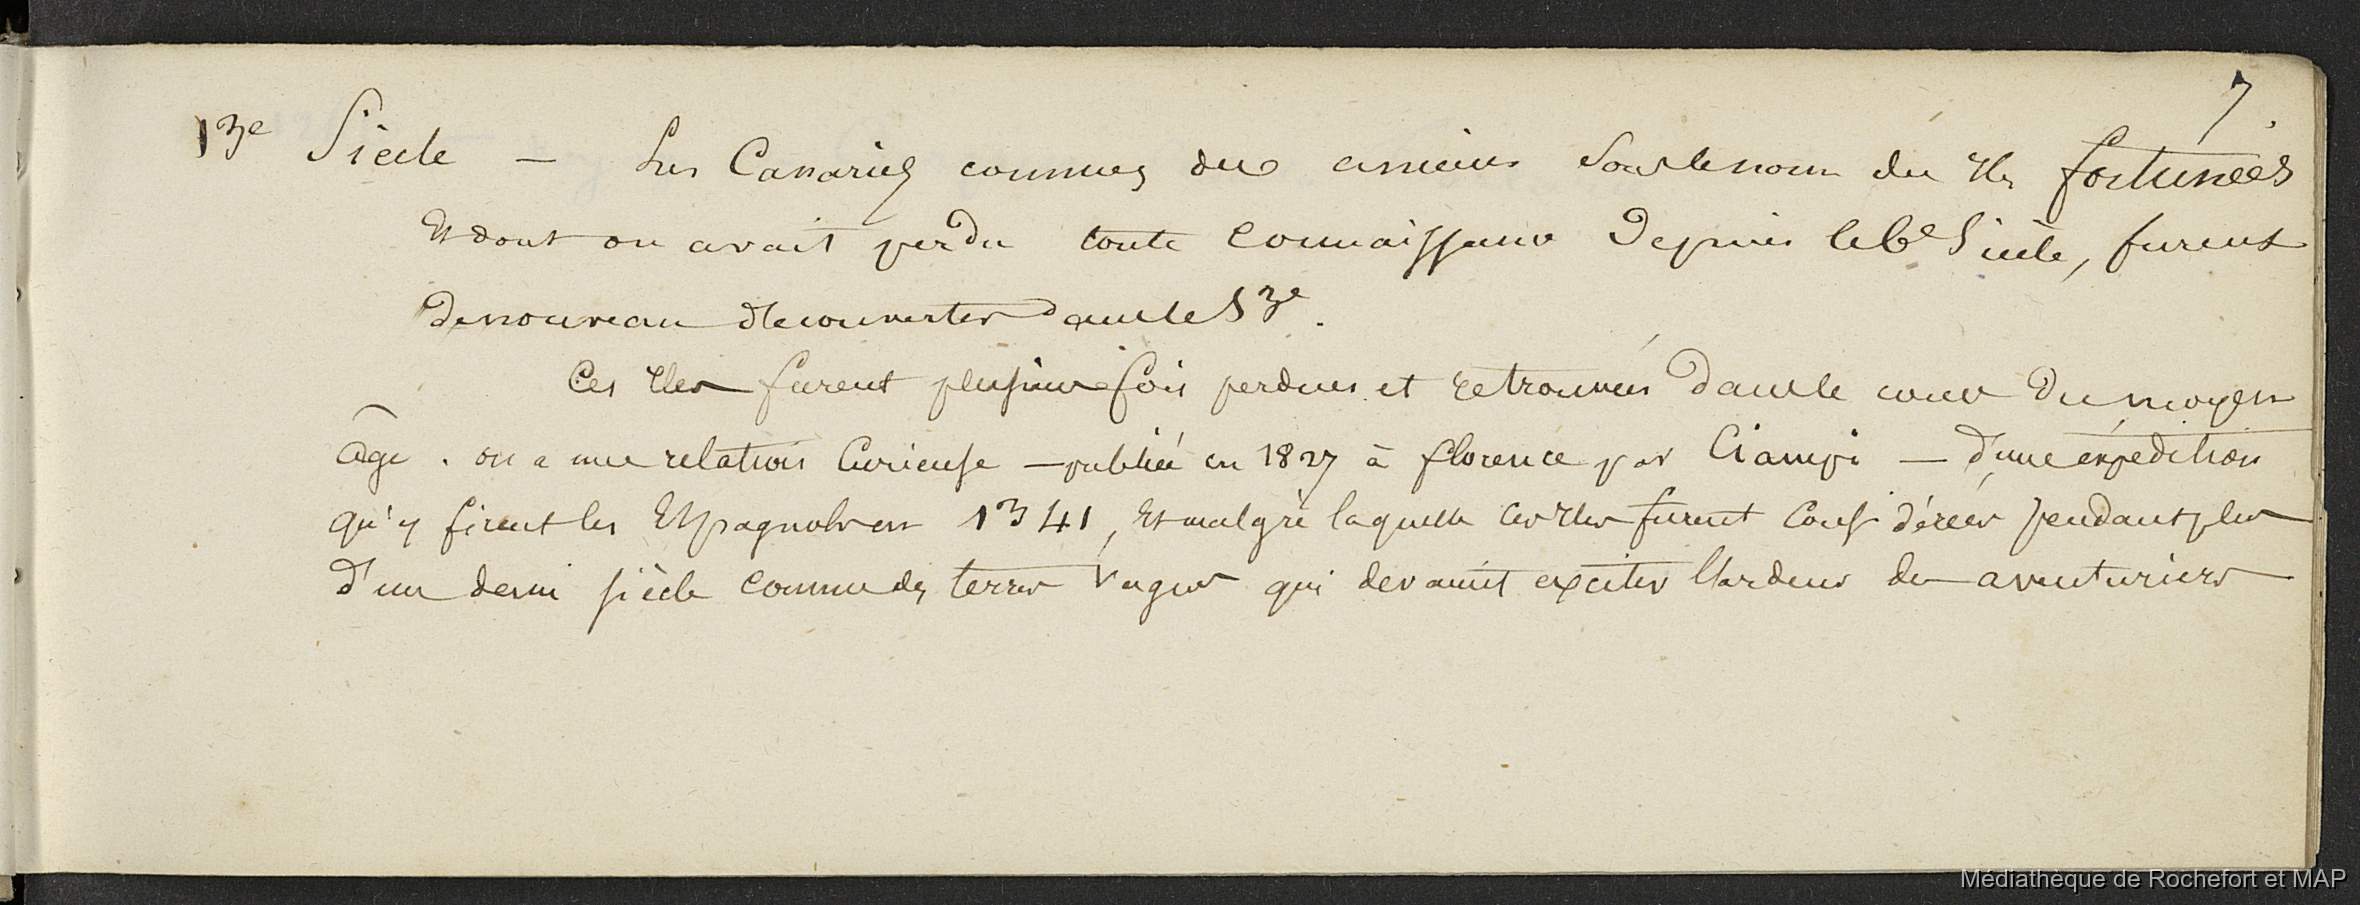 7.
13e Siècle — Les Canaries connues des anciens sous le nom des Iles fortunées
Et dont on avait perdu toute connaissance depuis le 6e Siècle, furent
de nouveau découvertes dans le 13e.
Ces Iles furent plusieurs fois perdues et retrouvées dans le cours du moyen
âge. on a une relation curieuse — publiée en 1827 à florence par Ciampi — d'une expédition
qu'y firent les Espagnols en 1341, Et malgré laquelle ces Iles furent considérées pendant plus
d'un demi siècle comme des terres vagues qui devaient exciter l'ardeur des aventuriers
Médiathèque de Rochefort et MAP